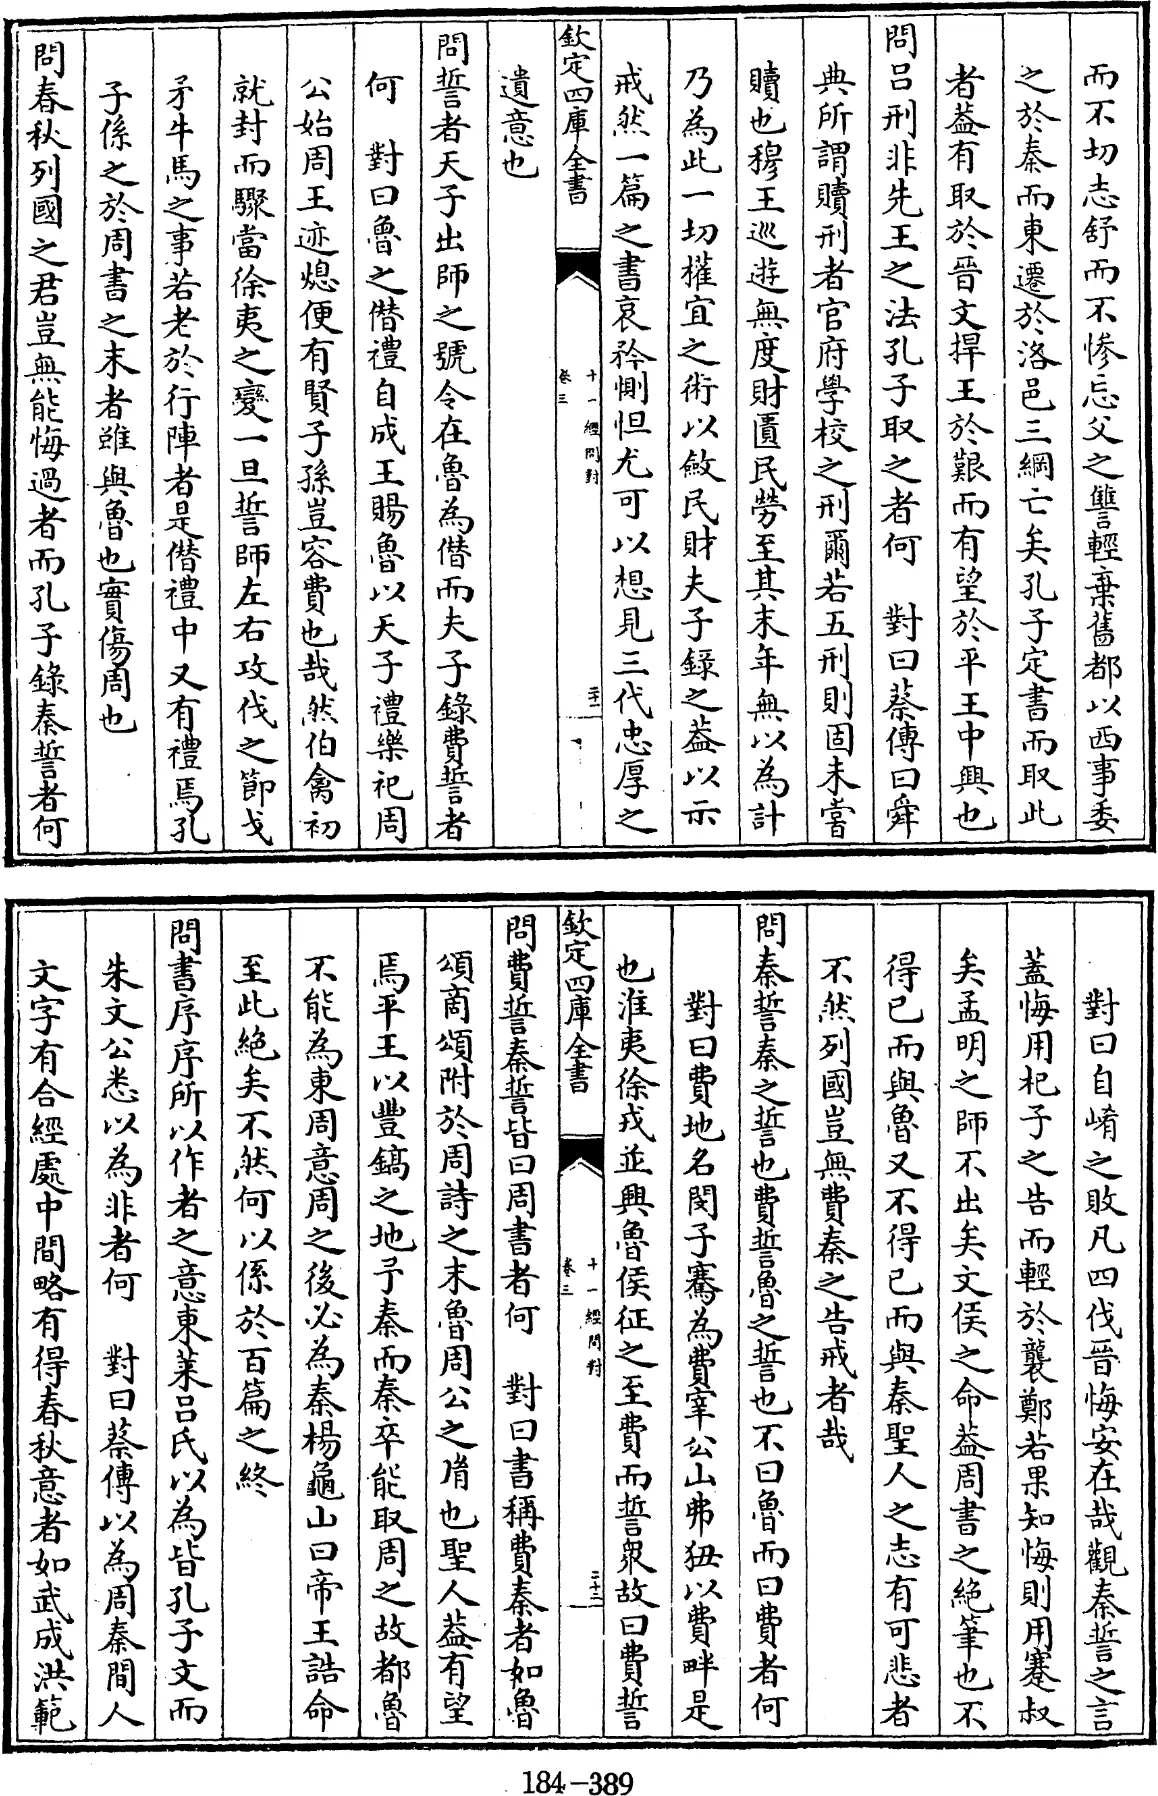 而不切志舒而不慘忘父之讐輕棄舊都以西事委
之於秦而東遷於洛邑三綱亡矣孔子定書而取此
者葢有取於晉文捍王於艱而有望於平王中興也
問呂刑非先王之法孔子取之者何　對曰蔡傳曰舜
典所謂贖刑者官府學校之刑爾若五刑則固未嘗
贖也穆王巡遊無度財匱民勞至其末年無以為計
乃為此一切權宜之術以斂民財夫子錄之葢以示
戒然一篇之書哀矜惻怛尤可以想見三代忠厚之
欽定四庫全書　卷三　十一經問對　二十二
遺意也
問誓者天子出師之號令在魯為僣而夫子錄費誓者
何　對曰魯之僣禮自成王賜魯以天子禮樂祀周
公始周王迹熄便有賢子孫豈容費也哉然伯禽初
就封而驟當徐夷之變一旦誓師左右攻伐之節戈
矛牛馬之事若老於行陣者是僣禮中又有禮焉孔
子係之於周書之末者雖與魯也實傷周也
問春秋列國之君豈無能悔過者而孔子錄秦誓者何
對曰自崤之敗凡四伐晉悔安在哉觀秦誓之言
蓋悔用杞子之告而輕於襲鄭若果知悔則用蹇叔
矣孟明之師不出矣文侯之命葢周書之絕筆也不
得已而與魯又不得已而與秦聖人之志有可悲者
不然列國豈無費秦之告戒者哉
問秦誓秦之誓也費誓魯之誓也不曰魯而曰費者何
對曰費地名閔子騫為費宰公山弗狃以費畔是
也淮夷徐戎並興魯侯征之至費而誓衆故曰費誓
欽定四庫全書　卷三　十一經問對　二十三
問費誓秦誓皆曰周書者何　對曰書稱費秦者如魯
頌商頌附於周詩之末魯周公之胄也聖人葢有望
焉平王以豐鎬之地予秦而秦卒能取周之故都魯
不能為東周意周之後必為秦楊龜山曰帝王誥命
至此絕矣不然何以係於百篇之終
問書序序所以作者之意東萊呂氏以為皆孔子文而
朱文公悉以為非者何　對曰蔡傳以為周秦間人
文字有合經處中間略有得春秋意者如武成洪範
184-389